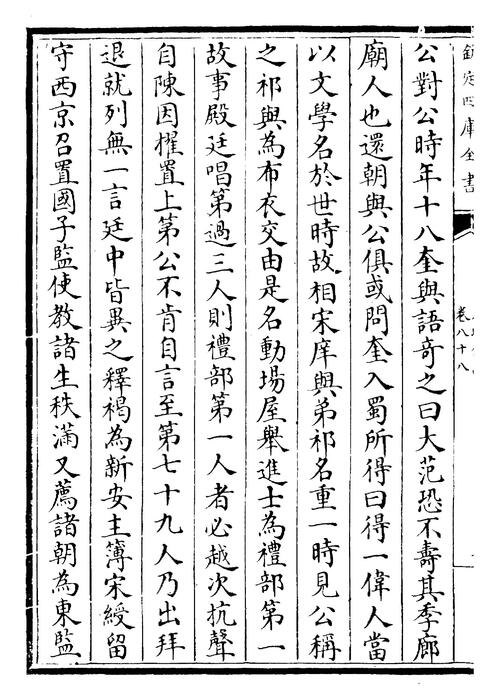 欽定四庫全書
卷八十八
公對公時年十八奎與語奇之曰大范恐不壽其季廊
廟人也還朝與公俱或問奎入蜀所得曰得一偉人當
以文學名於世時故相宋庠與弟祁名重一時見公稱
之祁與為布衣交由是名動場屋舉進士為禮部第一
故事殿廷唱第過三人則禮部第一人者必越次抗聲
自陳因擢置上第公不肯自言至第七十九人乃出拜
退就列無一言廷中皆異之釋褐為新安主簿宋綬留
守西京召置國子監使教諸生秩滿又薦諸朝為東監